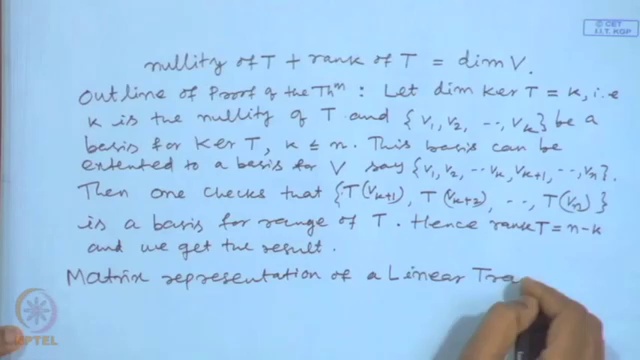 © CET
I.I.T. KGP
nullity of T + rank of T = dim V.
Outline of Proof of the Thm : Let dim ker T = k, i.e
k is the nullity of T and {v1, v2, ..., vk} be a
basis for Ker T, k ≤ n. This basis can be
extented to a basis for V say {v1, v2, ... vk, vk+1, ..., vn}.
Then one checks that {T(vk+1), T(vk+2), ..., T(vn)}
is a basis for range of T. Hence rank T = n-k
and we get the result.
Matrix representation of a Linear Tra
NPTEL